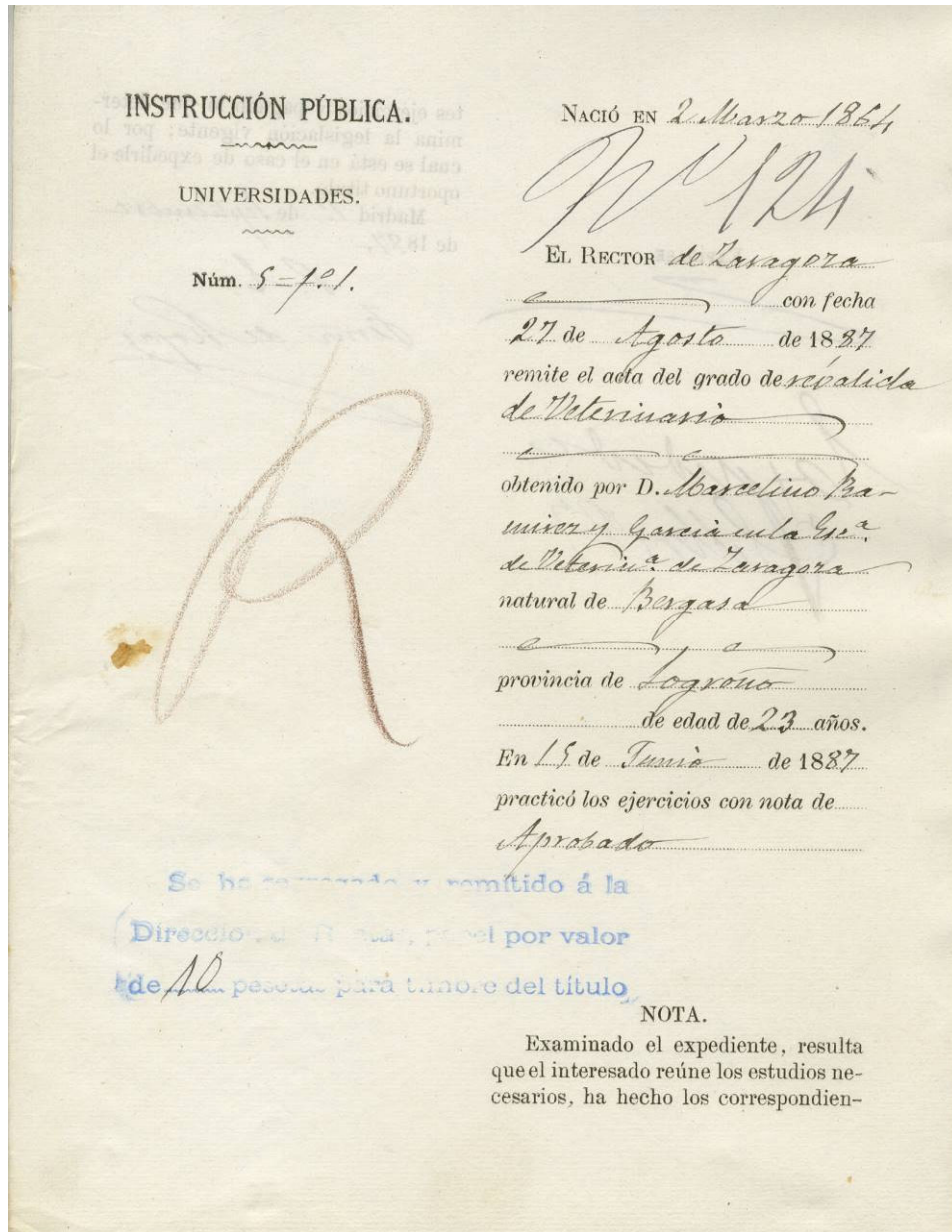 INSTRUCCIÓN PÚBLICA.
UNIVERSIDADES.
Núm. 5-fº 1.
R
NACIÓ EN 2 Marzo 1864
Nº 124
EL RECTOR de Zaragoza
con fecha
27 de Agosto de 1887
remite el acta del grado de reválida
de Veterinario
obtenido por D. Marcelino Ra-
mirez y Garcia en la Escª.
de Veterinª de Zaragoza
natural de Bergasa
provincia de Logroño
de edad de 23 años.
En 15 de Junio de 1887
practicó los ejercicios con nota de
Aprobado
Se ha y remitido á la
Dirección de Rentas, papel por valor
de 10 pesetas para timbre del título
NOTA.
Examinado el expediente, resulta
que el interesado reúne los estudios ne-
cesarios, ha hecho los correspondien-